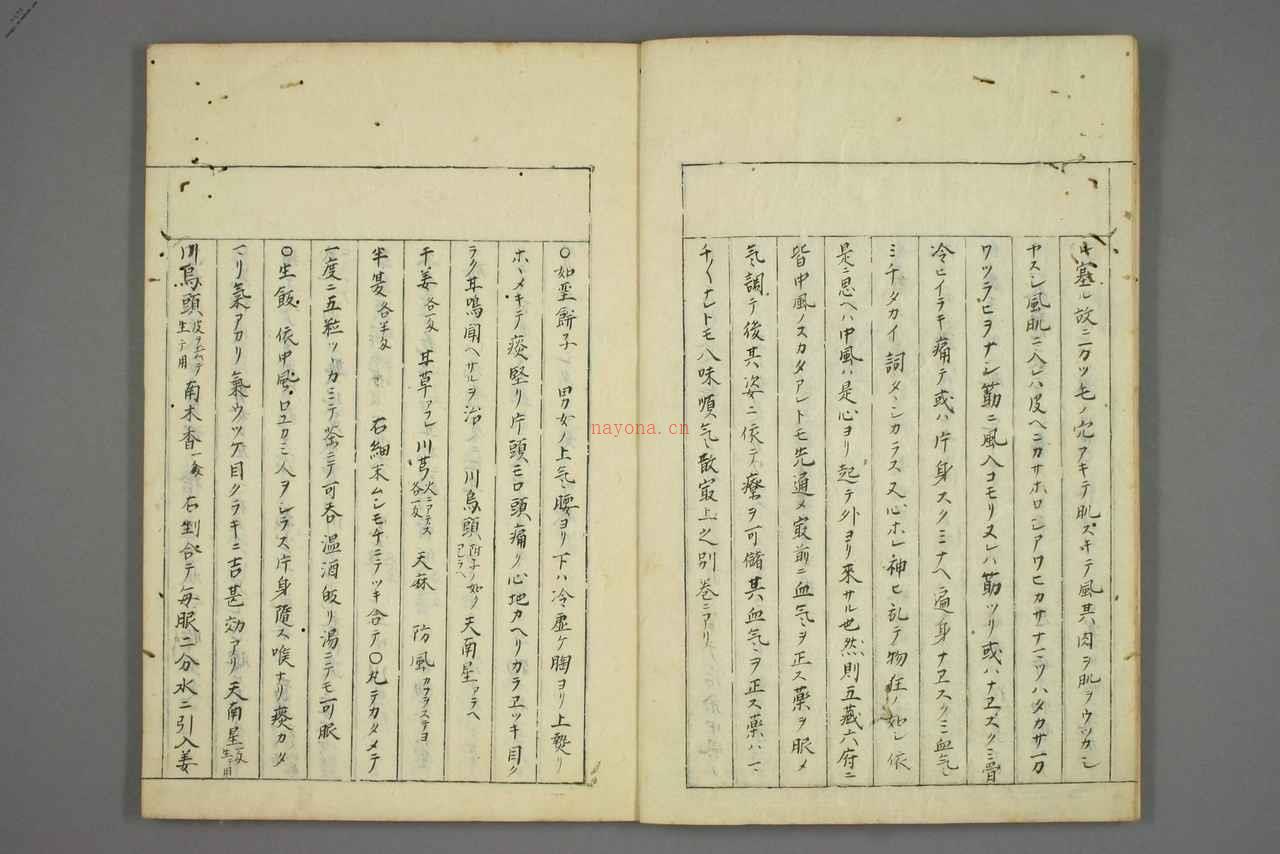 キ塞ル故ニ一万ツモノ穴アキテ肌スキテ風其肉ヲ肌ヲウツカシ
ヤスシ風肌ニ入レハ皮ヘニカサホロシアワヒカサナマツハタカサ一万
ワツラヒヲナシ筋ニ風入コモリヌレハ筋ツリ或ハナヱズクミ骨
冷ヒイラキ痛テ或ハ片身スクミナヘ遍身ナヱスクミ血気
ミチタカイ詞タヽシカラス又心ホレ神ヒ乱テ物狂ノ如シ依
是ニ思ヘハ中風ハ是心ヨリ起テ外ヨリ來サル也然則五藏六府ニ
皆中風ノスカタアレトモ先通メ最前ニ血気ヲ正ス薬ヲ服メ
気調テ後其姿ニ依テ療ヲ可儲其血気ヲ正ス薬ハ一
チノナレトモ八味順気散最上之別巻ニアリ
〇如聖餅子 男女ノ上気腰ヨリ下ハ冷虚ケ胸ヨリ上熱リ
ホヽメキテ痰堅リ片頭モロ頭痛ク心地カヘリカラヱツキ目ク
ラク耳鳴聞ヘサルヲ治 川烏頭 附子ノ如ク 天南星 アラヘ
干姜 各一文 甘草 アフレ 川芎 火ニアテス各一文 天麻 防風 カフラステヨ
半夏 各半文 右細末ムシモチニテツキ合テ〇丸テカタメテ
一度ニ五粒ツヽカミテ茶ニテ可呑温酒飯リ湯ニテモ可服
〇生飯 依中風口ユカミ人ヲシラス片身隨ス喉ナリ痰カタ
マリ氣アカリ氣ウツケ目クラキニ吉甚効アリ天南星 一文生テ用
川烏頭 皮ヲムテ生テ用 南木香 一文 右剉合テ毎服二分水ニ引入姜
nayona.cn